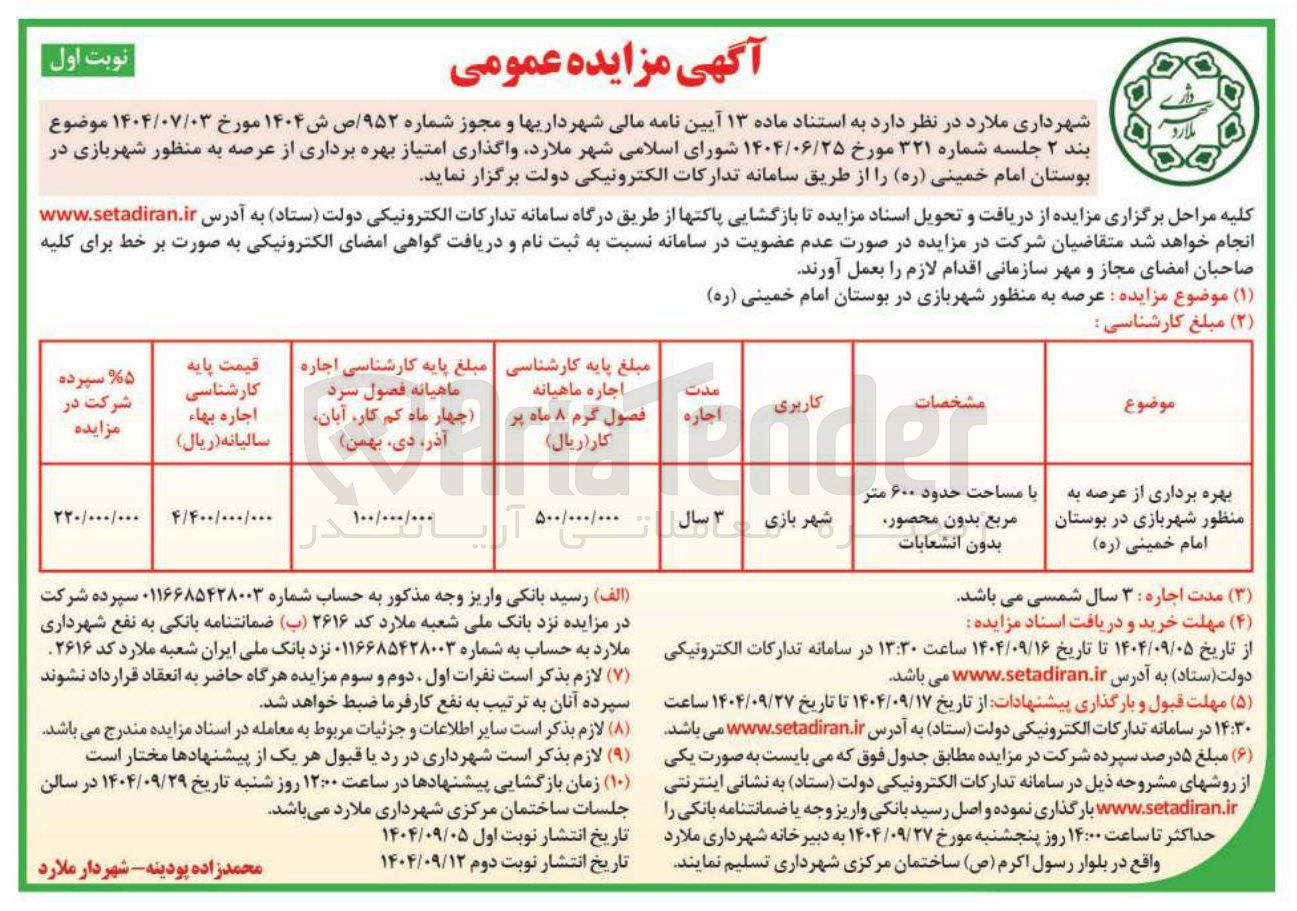 آگهی مزایده عمومی
نوبت اول
شهرداری ملارد
شهرداری ملارد در نظر دارد به استناد ماده ۱۳ آیین نامه مالی شهرداریها و مجوز شماره ۹۵۲/ص ش۱۴۰۴ مورخ ۱۴۰۴/۰۷/۰۳ موضوع
بند ۲ جلسه شماره ۳۲۱ مورخ ۱۴۰۴/۰۶/۲۵ شورای اسلامی شهر ملارد، واگذاری امتیاز بهره برداری از عرصه به منظور شهربازی در
بوستان امام خمینی (ره) را از طریق سامانه تدارکات الکترونیکی دولت برگزار نماید.
کلیه مراحل برگزاری مزایده از دریافت و تحویل اسناد مزایده تا بازگشایی پاکتها از طریق درگاه سامانه تدارکات الکترونیکی دولت (ستاد) به آدرس www.setadiran.ir
انجام خواهد شد متقاضیان شرکت در مزایده در صورت عدم عضویت در سامانه نسبت به ثبت نام و دریافت گواهی امضای الکترونیکی به صورت بر خط برای کلیه
صاحبان امضای مجاز و مهر سازمانی اقدام لازم را بعمل آورند.
(۱) موضوع مزایده : عرصه به منظور شهربازی در بوستان امام خمینی (ره)
(۲) مبلغ کارشناسی :
موضوع
مشخصات
کاربری
مدت
اجاره
مبلغ پایه کارشناسی
اجاره ماهیانه
فصول گرم ۸ ماه پر
کار(ریال)
مبلغ پایه کارشناسی اجاره
ماهیانه فصول سرد
(چهار ماه کم کار، آبان،
آذر، دی، بهمن)
قیمت پایه
کارشناسی
اجاره بهاء
سالیانه(ریال)
۵% سپرده
شرکت در
مزایده
بهره برداری از عرصه به
منظور شهربازی در بوستان
امام خمینی (ره)
با مساحت حدود ۶۰۰ متر
مربع بدون محصور،
بدون انشعابات
شهر بازی
۳ سال
۵۰۰/۰۰۰/۰۰۰
۱۰۰/۰۰۰/۰۰۰
۴/۴۰۰/۰۰۰/۰۰۰
۲۲۰/۰۰۰/۰۰۰
AriaTender
زنجیره معاملاتی آریاتندر
(۳) مدت اجاره : ۳ سال شمسی می باشد.
(۴) مهلت خرید و دریافت اسناد مزایده :
از تاریخ ۱۴۰۴/۰۹/۰۵ تا تاریخ ۱۴۰۴/۰۹/۱۶ ساعت ۱۳:۳۰ در سامانه تدارکات الکترونیکی
دولت(ستاد) به آدرس www.setadiran.ir می باشد.
(۵) مهلت قبول و بارگذاری پیشنهادات: از تاریخ ۱۴۰۴/۰۹/۱۷ تا تاریخ ۱۴۰۴/۰۹/۲۷ ساعت
۱۴:۳۰ در سامانه تدارکات الکترونیکی دولت (ستاد) به آدرس www.setadiran.ir می باشد.
(۶) مبلغ ۵درصد سپرده شرکت در مزایده مطابق جدول فوق که می بایست به صورت یکی
از روشهای مشروحه ذیل در سامانه تدارکات الکترونیکی دولت (ستاد) به نشانی اینترنتی
www.setadiran.ir بارگذاری نموده و اصل رسید بانکی واریز وجه یا ضمانتنامه بانکی را
حداکثر تا ساعت ۱۴:۰۰ روز پنجشنبه مورخ ۱۴۰۴/۰۹/۲۷ به دبیرخانه شهرداری ملارد
واقع در بلوار رسول اکرم (ص) ساختمان مرکزی شهرداری تسلیم نمایند.
(الف) رسید بانکی واریز وجه مذکور به حساب شماره ۰۱۱۶۶۸۵۴۲۸۰۰۳ سپرده شرکت
در مزایده نزد بانک ملی شعبه ملارد کد ۲۶۱۶ (ب) ضمانتنامه بانکی به نفع شهرداری
ملارد به حساب به شماره ۰۱۱۶۶۸۵۴۲۸۰۰۳ نزد بانک ملی ایران شعبه ملارد کد ۲۶۱۶ .
(۷) لازم بذکر است نفرات اول ، دوم و سوم مزایده هرگاه حاضر به انعقاد قرارداد نشوند
سپرده آنان به ترتیب به نفع کارفرما ضبط خواهد شد.
(۸) لازم بذکر است سایر اطلاعات و جزئیات مربوط به معامله در اسناد مزایده مندرج می باشد.
(۹) لازم بذکر است شهرداری در رد یا قبول هر یک از پیشنهادها مختار است
(۱۰) زمان بازگشایی پیشنهادها در ساعت ۱۲:۰۰ روز شنبه تاریخ ۱۴۰۴/۰۹/۲۹ در سالن
جلسات ساختمان مرکزی شهرداری ملارد می‌باشد.
تاریخ انتشار نوبت اول ۱۴۰۴/۰۹/۰۵
تاریخ انتشار نوبت دوم ۱۴۰۴/۰۹/۱۲
محمدزاده پودینه - شهردار ملارد